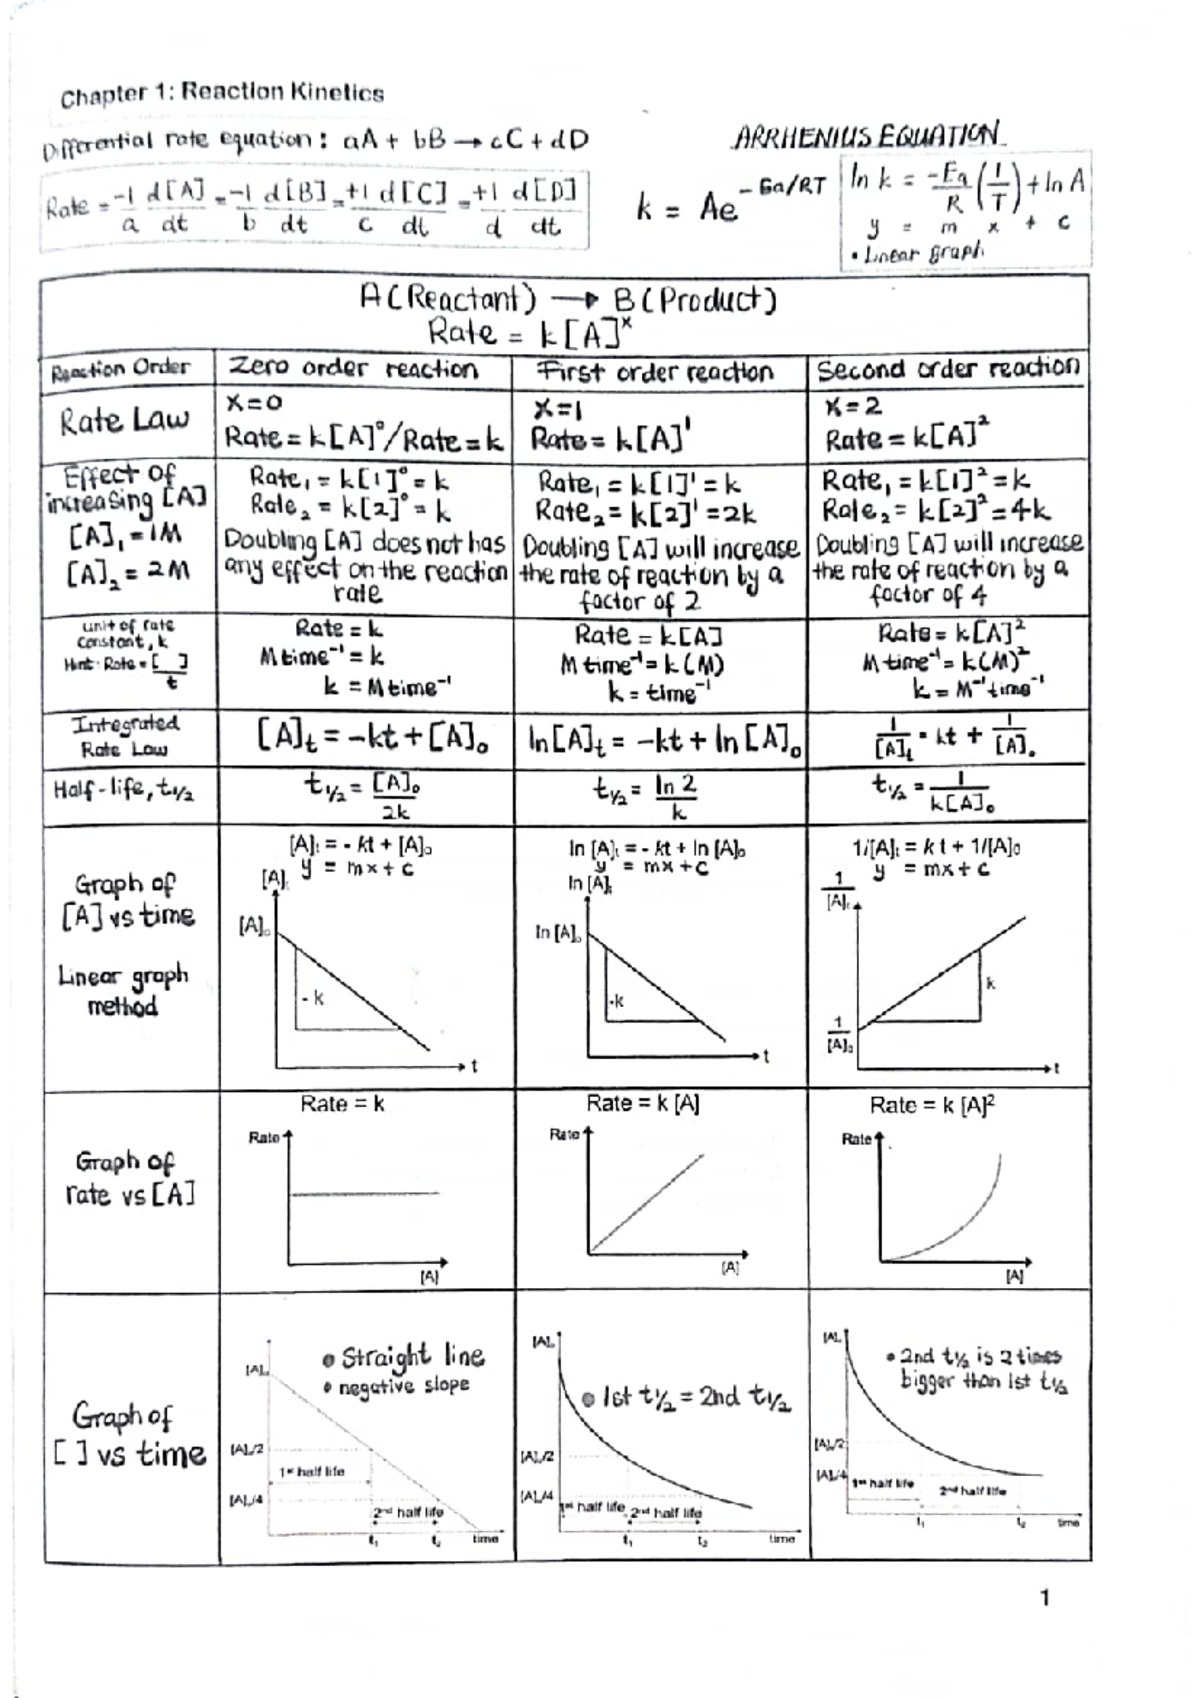 Chapter 1: Reaction Kinetics
Differential rate equation : aA + bB → cC + dD
Rate = -1/a d[A]/dt = -1/b d[B]/dt = +1/c d[C]/dt = +1/d d[D]/dt
ARRHENIUS EQUATION
k = Ae^-Ea/RT
ln k = -Ea/R (1/T) + ln A
y = m x + c
• Linear graph
A (Reactant) → B (Product)
Rate = k[A]^x
Reaction Order
Zero order reaction
First order reaction
Second order reaction
Rate Law
x=0
Rate = k[A]⁰/Rate = k
x=1
Rate = k[A]¹
x=2
Rate = k[A]²
Effect of
increasing [A]
[A]₁ = 1M
[A]₂ = 2M
Rate₁ = k[1]⁰ = k
Rate₂ = k[2]⁰ = k
Doubling [A] does not has
any effect on the reaction
rate
Rate₁ = k[1]¹ = k
Rate₂ = k[2]¹ = 2k
Doubling [A] will increase
the rate of reaction by a
factor of 2
Rate₁ = k[1]² = k
Rate₂ = k[2]² = 4k
Doubling [A] will increase
the rate of reaction by a
factor of 4
unit of rate
constant, k
Hint: Rate = [ ]/t
Rate = k
M time⁻¹ = k
k = M time⁻¹
Rate = k[A]
M time⁻¹ = k (M)
k = time⁻¹
Rate = k[A]²
M time⁻¹ = k(M)²
k = M⁻¹ time⁻¹
Integrated
Rate Law
[A]t = -kt + [A]₀
ln[A]t = -kt + ln[A]₀
1/[A]t = kt + 1/[A]₀
Half-life, t1/2
t1/2 = [A]₀/2k
t1/2 = ln 2/k
t1/2 = 1/k[A]₀
Graph of
[A] vs time
Linear graph
method
[A]t = - kt + [A]₀
y = mx + c
[A]t
[A]₀
- k
t
ln [A]t = - kt + ln [A]₀
y = mx + c
ln [A]t
ln [A]₀
-k
t
1/[A]t = k t + 1/[A]₀
y = mx + c
1/[A]t
k
1/[A]₀
t
Graph of
rate vs [A]
Rate = k
Rate
[A]
Rate = k [A]
Rate
[A]
Rate = k [A]²
Rate
[A]
Graph of
[ ] vs time
• Straight line
• negative slope
[A]₀
[A]₀/2
1st half life
[A]₀/4
2nd half life
t₁ t₂ time
[A]₀
• 1st t1/2 = 2nd t1/2
[A]₀/2
[A]₀/4
1st half life 2nd half life
t₁ t₂ time
[A]₀
• 2nd t1/2 is 2 times
bigger than 1st t1/2
[A]₀/2
[A]₀/4
1st half life 2nd half life
t₁ t₂ time
1